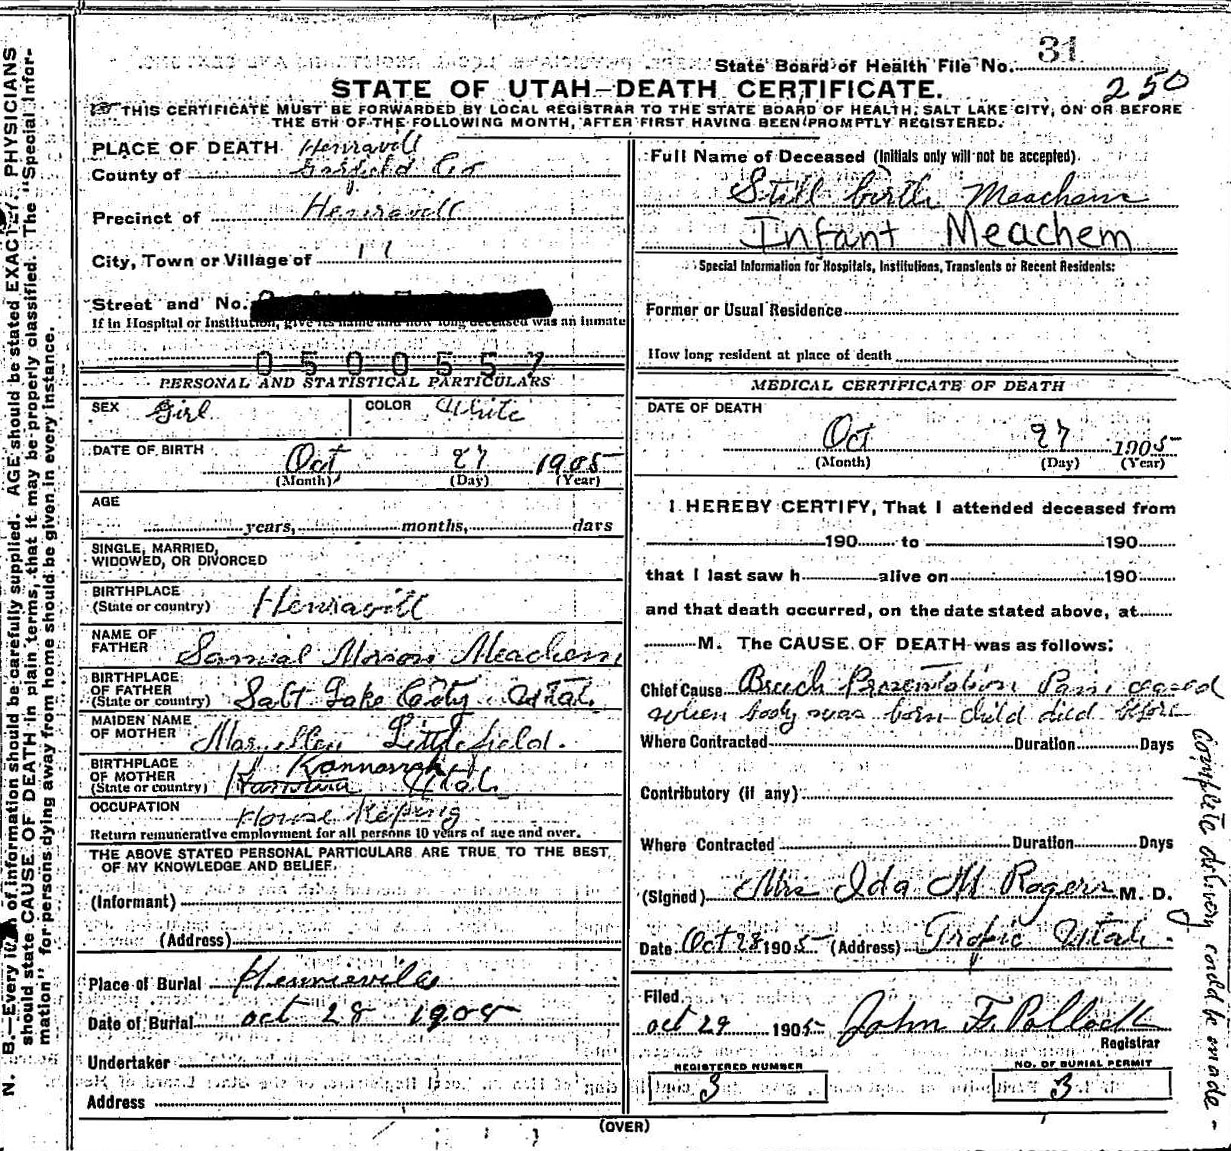 State Board of Health File No. 31
250
STATE OF UTAH—DEATH CERTIFICATE.
THIS CERTIFICATE MUST BE FORWARDED BY LOCAL REGISTRAR TO THE STATE BOARD OF HEALTH, SALT LAKE CITY, ON OR BEFORE
THE 5TH OF THE FOLLOWING MONTH, AFTER FIRST HAVING BEEN PROMPTLY REGISTERED.
PLACE OF DEATH Henravill
County of Garfield Co
Precinct of Henravill
City, Town or Village of 11
Street and No.
If in Hospital or Institution, give its name and how long deceased was an inmate
0500557
PERSONAL AND STATISTICAL PARTICULARS
SEX Girl COLOR White
DATE OF BIRTH Oct 27 1905
(Month) (Day) (Year)
AGE
years, months, days
SINGLE, MARRIED,
WIDOWED, OR DIVORCED
BIRTHPLACE
(State or country) Henravill
NAME OF
FATHER Samual Morson Meachem
BIRTHPLACE
OF FATHER
(State or country) Salt Lake City Utah
MAIDEN NAME
OF MOTHER Mary Ellen Littlefield.
BIRTHPLACE
OF MOTHER Kannarrah
(State or country) Utah
OCCUPATION House Keping
Return remunerative employment for all persons 10 years of age and over.
THE ABOVE STATED PERSONAL PARTICULARS ARE TRUE TO THE BEST
OF MY KNOWLEDGE AND BELIEF.
(Informant)
(Address)
Place of Burial Hennieville
Date of Burial oct 28 1905
Undertaker
Address
Full Name of Deceased (Initials only will not be accepted).
Still birth Meachem
Infant Meachem
Special Information for Hospitals, Institutions, Transients or Recent Residents:
Former or Usual Residence
How long resident at place of death
MEDICAL CERTIFICATE OF DEATH
DATE OF DEATH
Oct 27 1905
(Month) (Day) (Year)
I HEREBY CERTIFY, That I attended deceased from
190 to 190
that I last saw h alive on 190
and that death occurred, on the date stated above, at
M. The CAUSE OF DEATH was as follows:
Chief Cause Breech Presentation Pain ceased
when body was born child died before
complete delivery could be made -
Where Contracted Duration Days
Contributory (if any)
Where Contracted Duration Days
(Signed) Mrs Ida M Rogers M. D.
Date Oct 28 1905 (Address) Tropic Utah.
Filed
oct 29 1905 John F. Pollock
Registrar
REGISTERED NUMBER
3
NO. OF BURIAL PERMIT
3
(OVER)
N. B.—Every item of information should be carefully supplied. AGE should be stated EXACTLY. PHYSICIANS
should state CAUSE OF DEATH in plain terms, that it may be properly classified. The "Special Infor-
mation" for persons dying away from home should be given in every instance.